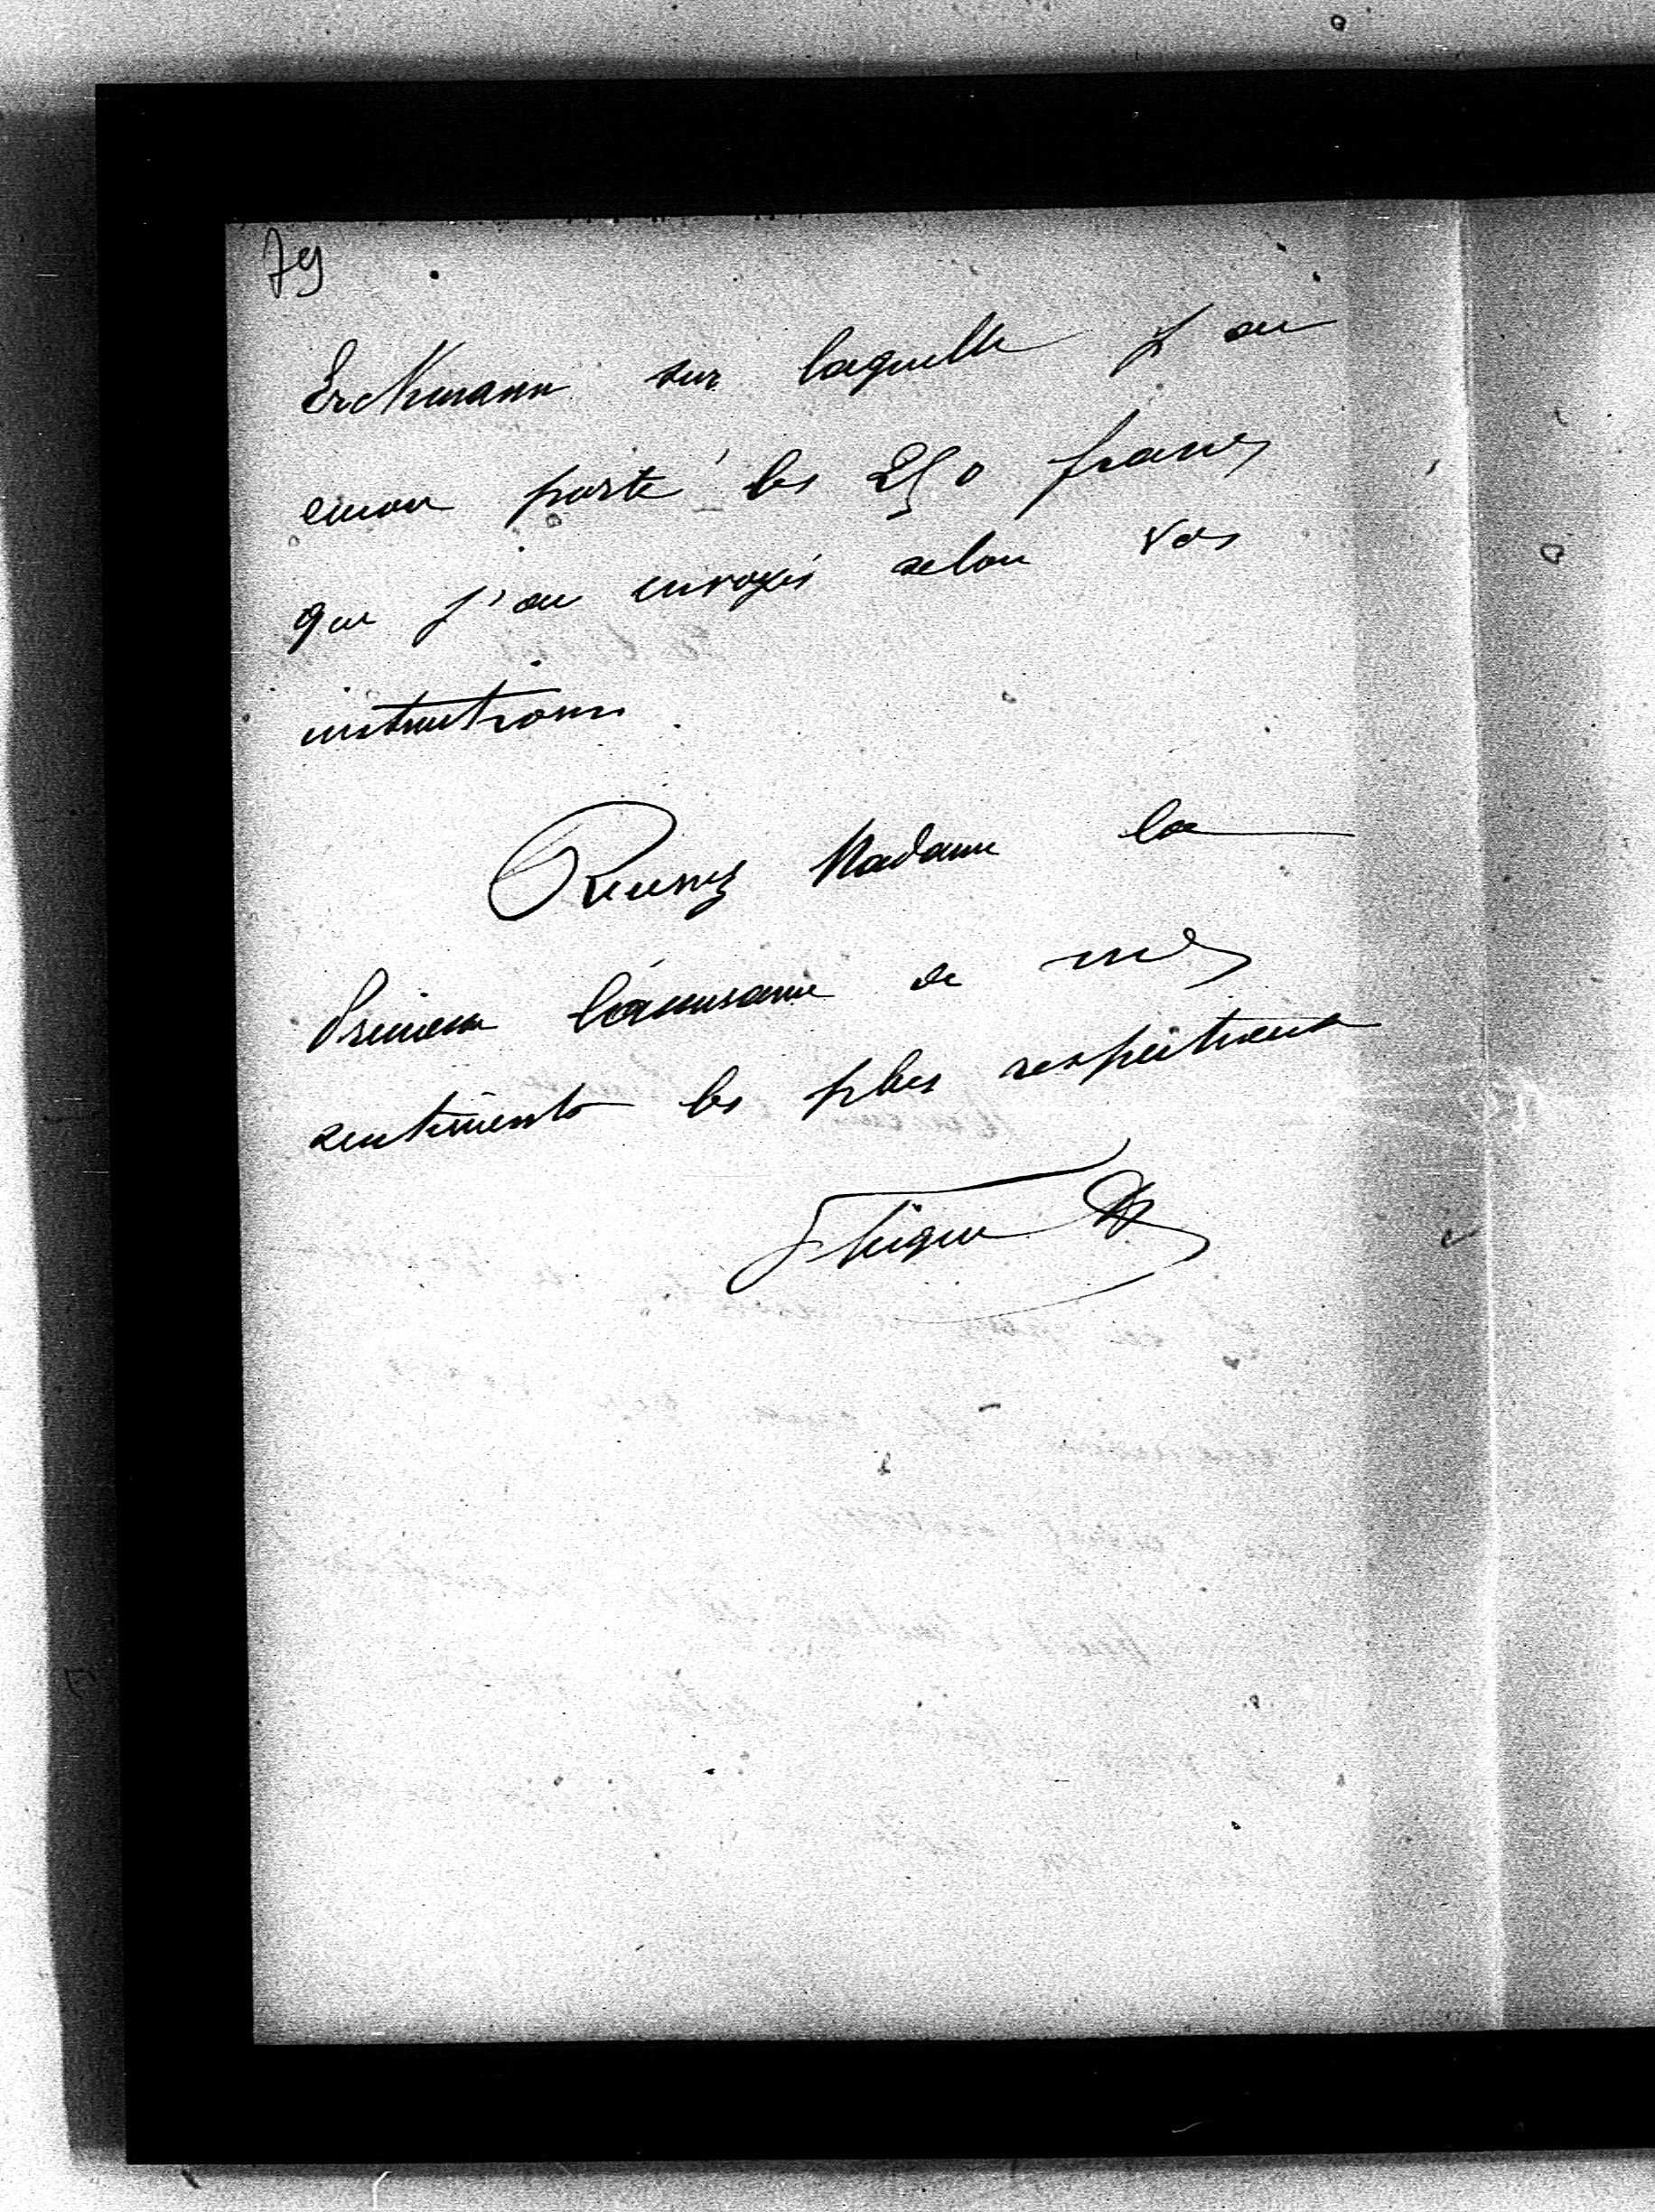 79
Erckmann sur laquelle j'ai
encore porté les 250 francs
que j'ai envoyés selon vos
instructions.
Recevez Madame la
Princesse l'assurance de mes
sentiments les plus respectueux